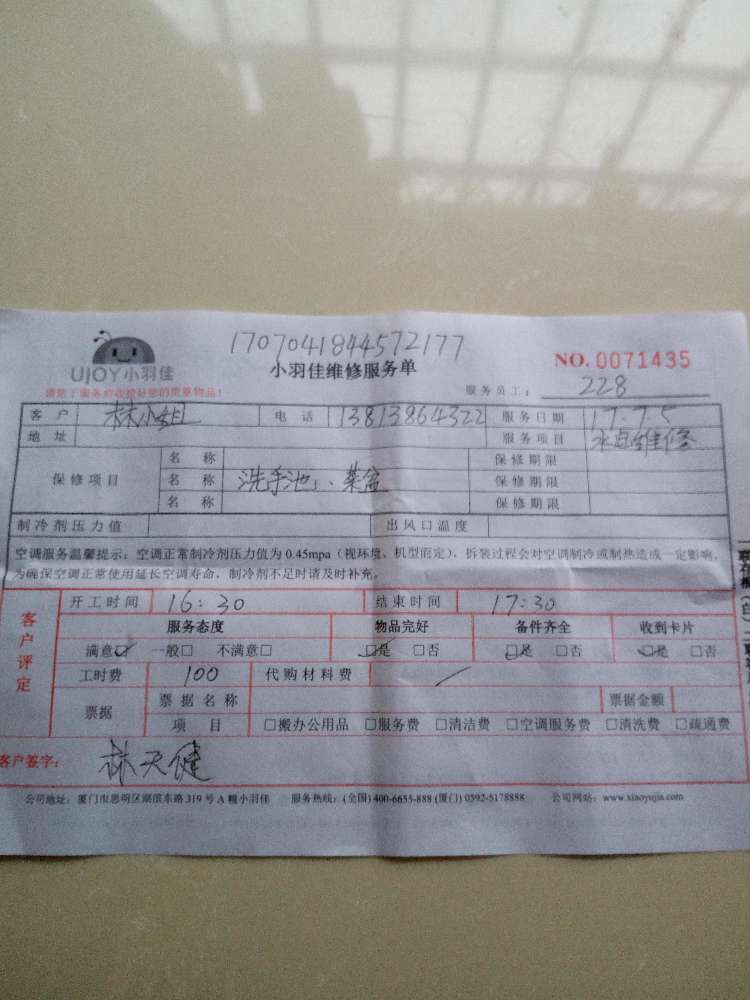 1707041844572177
UJOY小羽佳
小羽佳维修服务单
NO. 0071435
服务员工: 228
客户 林小姐 电话 13813864322 服务日期 17.7.5
地址 服务项目 水电维修
保修项目
名称 保修期限
名称 洗手池、菜盆 保修期限
名称 保修期限
制冷剂压力值 出风口温度
空调服务温馨提示:空调正常制冷剂压力值为 0.45mpa(视环境、机型而定),拆装过程会对空调制冷或制热造成一定影响,
为确保空调正常使用延长空调寿命,制冷剂不足时请及时补充。
客户评定
开工时间 16:30 结束时间 17:30
服务态度 物品完好 备件齐全 收到卡片
满意☑ 一般□ 不满意□ ☑是 □否 ☑是 □否 ☑是 □否
工时费 100 代购材料费 /
票据 票据名称 票据金额
项目 □搬办公用品 □服务费 □清洁费 □空调服务费 □清洗费 □疏通费
客户签字: 林天健
公司地址:厦门市思明区湖滨东路 319 号 A 幢小羽佳 服务热线:(全国) 400-6655-888 (厦门) 0592-5178888 公司网站:www.xiaoyujia.com